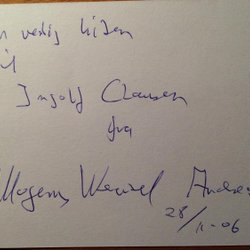 venlig hilsen
til
Ingolf Clausen
fra
Mogens Wenzel Andrea
28/11-06